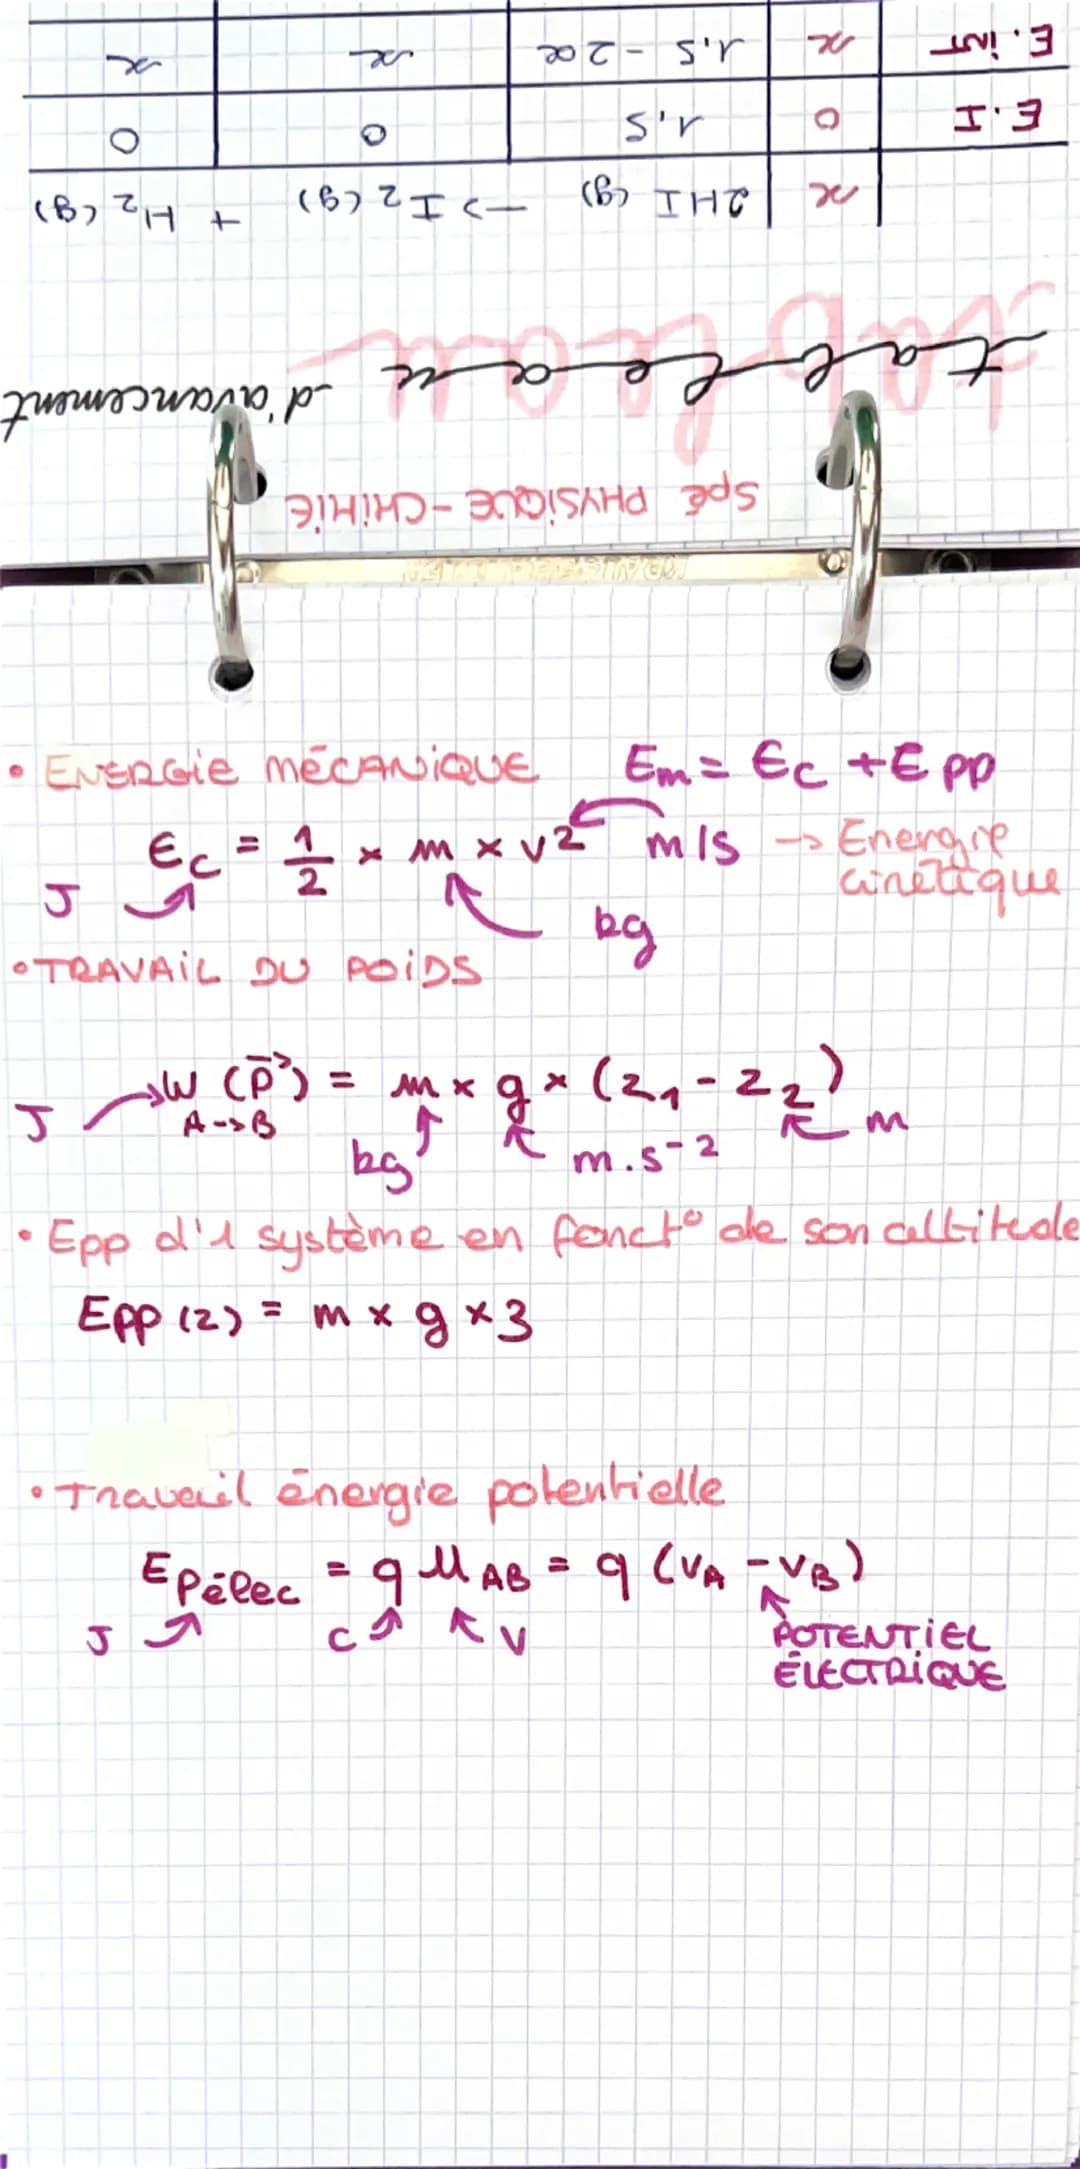 Spé PHYSIQUE-CHIMIE
tableau d'avancement
x 2HI (g) -> I2 (g) + H2 (g)
E.I 0 1,5 0 0
E.int x 1,5 - 2x x x
• ENERGIE MÉCANIQUE Em = Ec + Epp
Ec = 1/2 × m × v² m/s -> Energie cinétique
J kg
• TRAVAIL DU POIDS
J W (P⃗) = m × g × (z1 - z2) m
A->B kg m.s-2
• Epp d'1 système en fonct° de son altitude
Epp (z) = m × g × 3
• Travail énergie potentielle
Epélec = q UAB = q (VA - VB)
J C V POTENTIEL
ÉLECTRIQUE